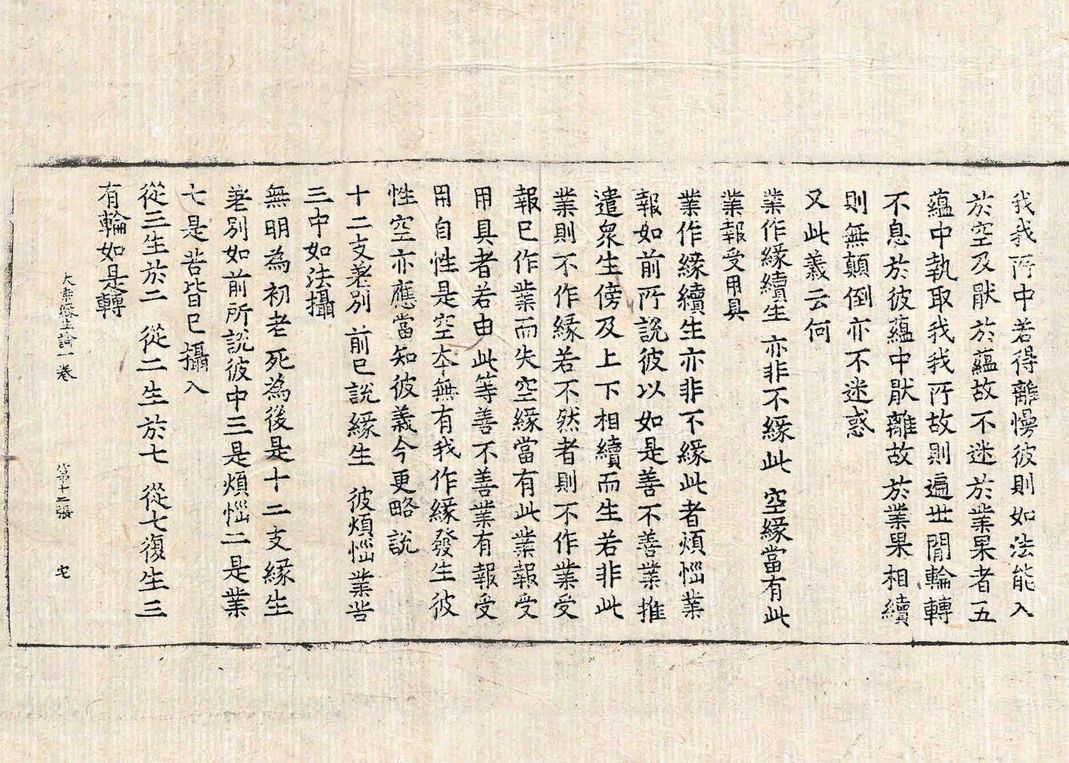 我我所中若得離慢彼則如法能入
於空及猒於蘊故不迷於業果者五
蘊中執取我我所故則遍世間輪轉
不息於彼蘊中猒離故於業果相續
則無顛倒亦不迷惑
又此義云何
業作緣續生 亦非不緣此 空緣當有此
業報受用具
業作緣續生亦非不緣此者煩惱業
報如前所說彼以如是善不善業推
遣衆生傍及上下相續而生若非此
業則不作緣若不然者則不作業受
報已作業而失空緣當有此業報受
用具者若由此等善不善業有報受
用自性是空本無有我作緣發生彼
性空亦應當知彼義今更略說
十二支差別 前已說緣生 彼煩惱業苦
三中如法攝
無明為初老死為後是十二支緣生
差別如前所說彼中三是煩惱二是業
七是苦皆已攝入
從三生於二 從二生於七 從七復生三
有輪如是轉
大乘緣生論一卷 第十二張 宅